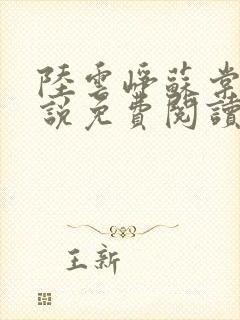 陸雲崢蘇棠
說免費閱讀
王新